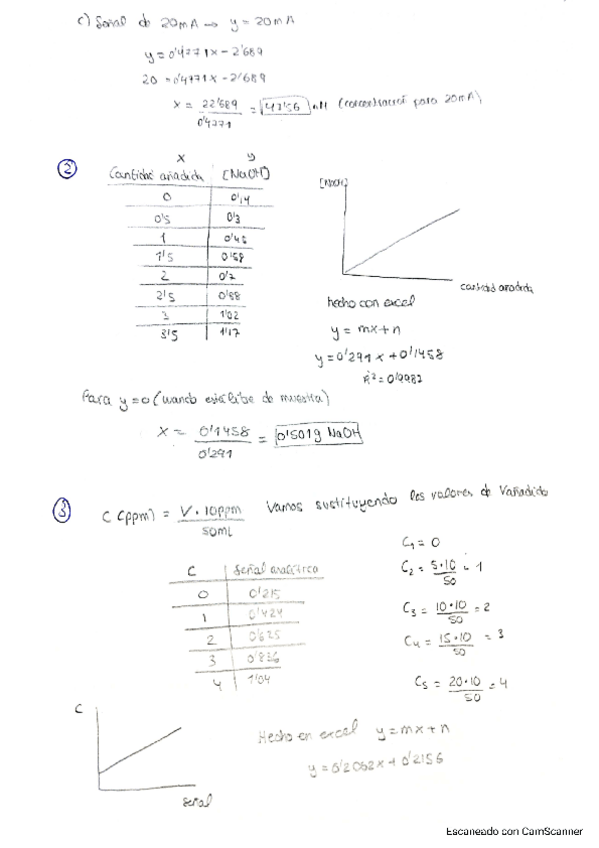 c) Señal de 20mA → y = 20mA
y = 0'4771x - 2'689
20 = 0'4771x - 2'689
x = 22'689 / 0'4771 = 47'56 nM (concentración para 20mA)
②
x y
Cantidad añadida [NaOH]
0 0'14
0'5 0'3
1 0'45
1'5 0'58
2 0'7
2'5 0'88
3 1'02
3'5 1'17
[NaOH]
cantidad añadida
hecho con excel
y = mx + n
y = 0'291x + 0'1458
R² = 0'9982
Para y = 0 (cuando esté libre de muestra)
x = 0'1458 / 0'291 = 0'501g NaOH
③ C (ppm) = V · 10ppm / 50mL Vamos sustituyendo los valores de Vañadido
C₁ = 0
C₂ = 5·10 / 50 = 1
C₃ = 10·10 / 50 = 2
C₄ = 15·10 / 50 = 3
C₅ = 20·10 / 50 = 4
C Señal analítica
0 0'215
1 0'424
2 0'625
3 0'836
4 1'04
C
señal
Hecho en excel y = mx + n
y = 0'2062x + 0'2156
Escaneado con CamScanner